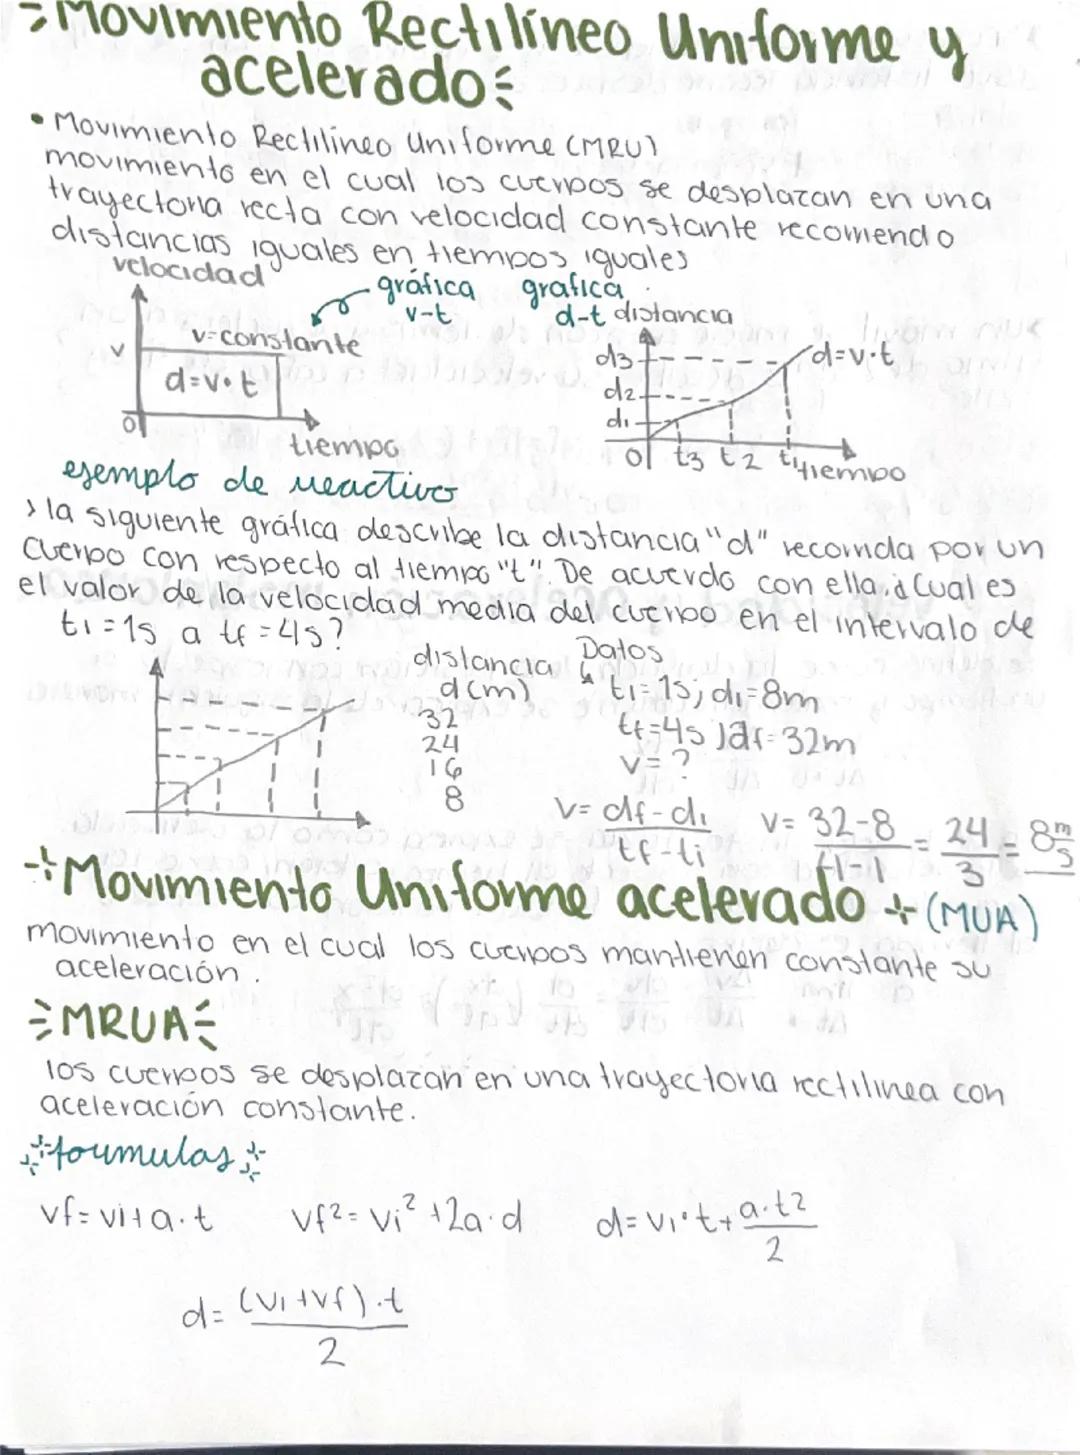 Movimiento Rectilíneo Uniforme y
acelerado
• Movimiento Rectilineo Uniforme (MRU)
movimiento en el cual los cuerpos se desplazan en una
trayectoria recta con velocidad constante recorriendo
distancias iguales en tiempos iguales
velocidad
gráfica
v-t
grafica
d-t distancia
v=constante
v
d=v•t
0
tiempo
d3
d2
d1
d=v•t
0 t3 t2 t1
tiempo
ejemplo de reactivo
> la siguiente gráfica describe la distancia "d" recorrida por un
cuerpo con respecto al tiempo "t". De acuerdo con ella, ¿Cuál es
el valor de la velocidad media del cuerpo en el intervalo de
ti=1s a tf=4s?
distancia
d(m)
32
24
16
8
Datos
ti=1s; di=8m
tf=4s; df=32m
v=?
v= df-di / tf-ti
v= 32-8 / 4-1 = 24 / 3 = 8 m/s
Movimiento Uniforme acelerado (MUA)
movimiento en el cual los cuerpos mantienen constante su
aceleración.
MRUA
los cuerpos se desplazan en una trayectoria rectilinea con
aceleración constante.
formulas
vf=vi+a·t
vf²=vi²+2a·d
d=vi·t+ a·t2 / 2
d= (vi+vf)·t / 2